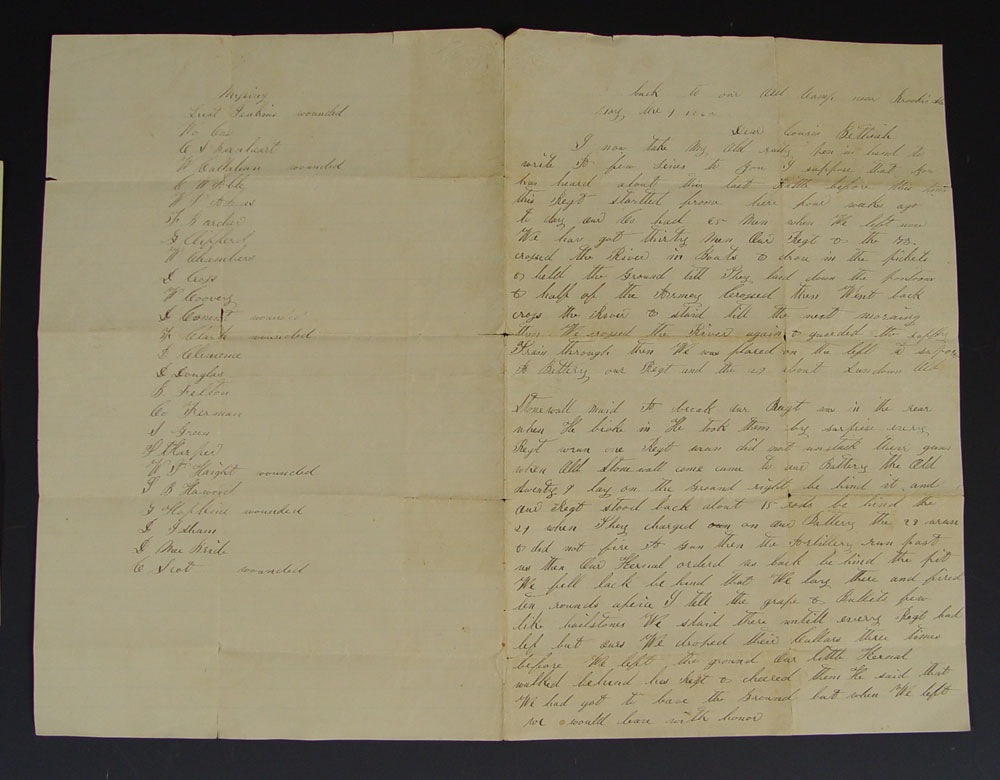 Missing
Lieut Jenkins wounded
Co
C S
W Callahan wounded
C W Able
W
F Barber
Clifferd
W Chambers
D Cross
W Coovery
D Conent wounded
Clark wounded
D Clemence
D Douglas
Felton
Co Freman
S Green
Harper
W F Haight wounded
S B Harwood
Hopkins wounded
D Isham
D Mac Bride
C Scot wounded
back to our Old Camp near Brooks
Dear Cousin
I now take my Old rusty pen in hand to
write A few lines to you I suppose that you
has heard about this last Battle before this time
this Regt startted from here four weaks ago
to day our Co had 65 Men when We left now
We hav got thirty Men Our Regt & the
crossed the River in Boats & drove in the pickets
& helth the Ground till They laid down the pontoon
& half of the Armey Crossed then Went back
cross the River & staid till the next morning
then We crossed the River again & guarded the
Train through then We was placed on the left to
A Battery our Regt and the 29 about Sundown Old
Stonewall maid A break our Regt was in the rear
when He broke in He took them by surprise every
Regt wrun one Regt wrun did not unstack their guns
when Old Stonewall come came to our Battery the Old
twenty 9 lay on the Ground right be hind it and
our Regt stood back about 15 rods be hind the
29 when They charged on our Battery the 29 wrun
& did not fire A Gun then the Artillery run past
us then Our Kernal ordered us back be hind the pit
We fell back be hind that We lay there and fired
ten rounds apiece I tell the grape & Bullets few
like hailstones We staid there untill every Regt had
lef but ours We droped their Cullars three times
before We left the ground Our little Kernal
walked behind his Regt & cheered them He said that
We had got to leave the Ground but when We left
we would leave with honor